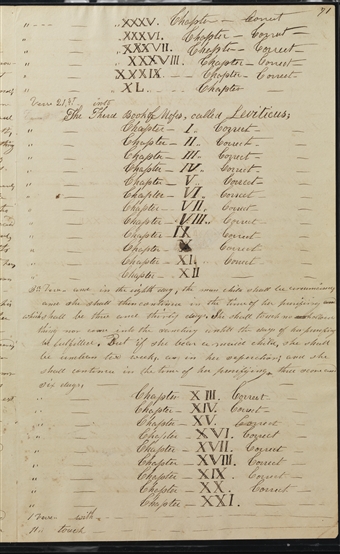 91
" — " XXXV. Chapter — Correct
" — " XXXVI. Chapter — Correct —
" — " XXXVII. Chapter — Correct —
" — " XXXVIII. Chapter — Correct —
" — XXXIX. — Chapter — Correct —
" — XL. — Chapter —
Verse 21st.
The Third Book of Moses, called Leviticus;
" — Chapter — I. Correct —
" — Chapter — II. Correct —
" — Chapter — III. Correct —
" — Chapter — IV. Correct —
" — Chapter — V Correct —
" — Chapter — VI. Correct —
" — Chapter — VII. Correct —
" — Chapter — VIII. Correct —
" — Chapter IX Correct —
" — Chapter X Correct —
" — Chapter — XI. Correct —
" — Chapter — XII
3d Verse and in the eighth day, the man child shall be circumcised
and she shall then continue in the time of her purifying
which shall be three and thirty days. She shall touch no hallowed
thing nor come into the sanctuary untill the days of her purifying
be fulfilled, But if she bear a maid child, she shall
be unclean two weeks, as in her seperation; and she
shall continue in the time of her purifying, three score
six days;
" — Chapter XIII. Correct —
" — Chapter — XIV. Correct —
" — Chapter — XV. Correct —
" — Chapter — XVI. Correct —
" — Chapter — XVII. Correct —
" — Chapter — XVIII. Correct —
" — Chapter — XIX. Correct —
" — Chapter — XX. — Correct —
" — Chapter — XXI. —
1 Verse with —
11th touch —